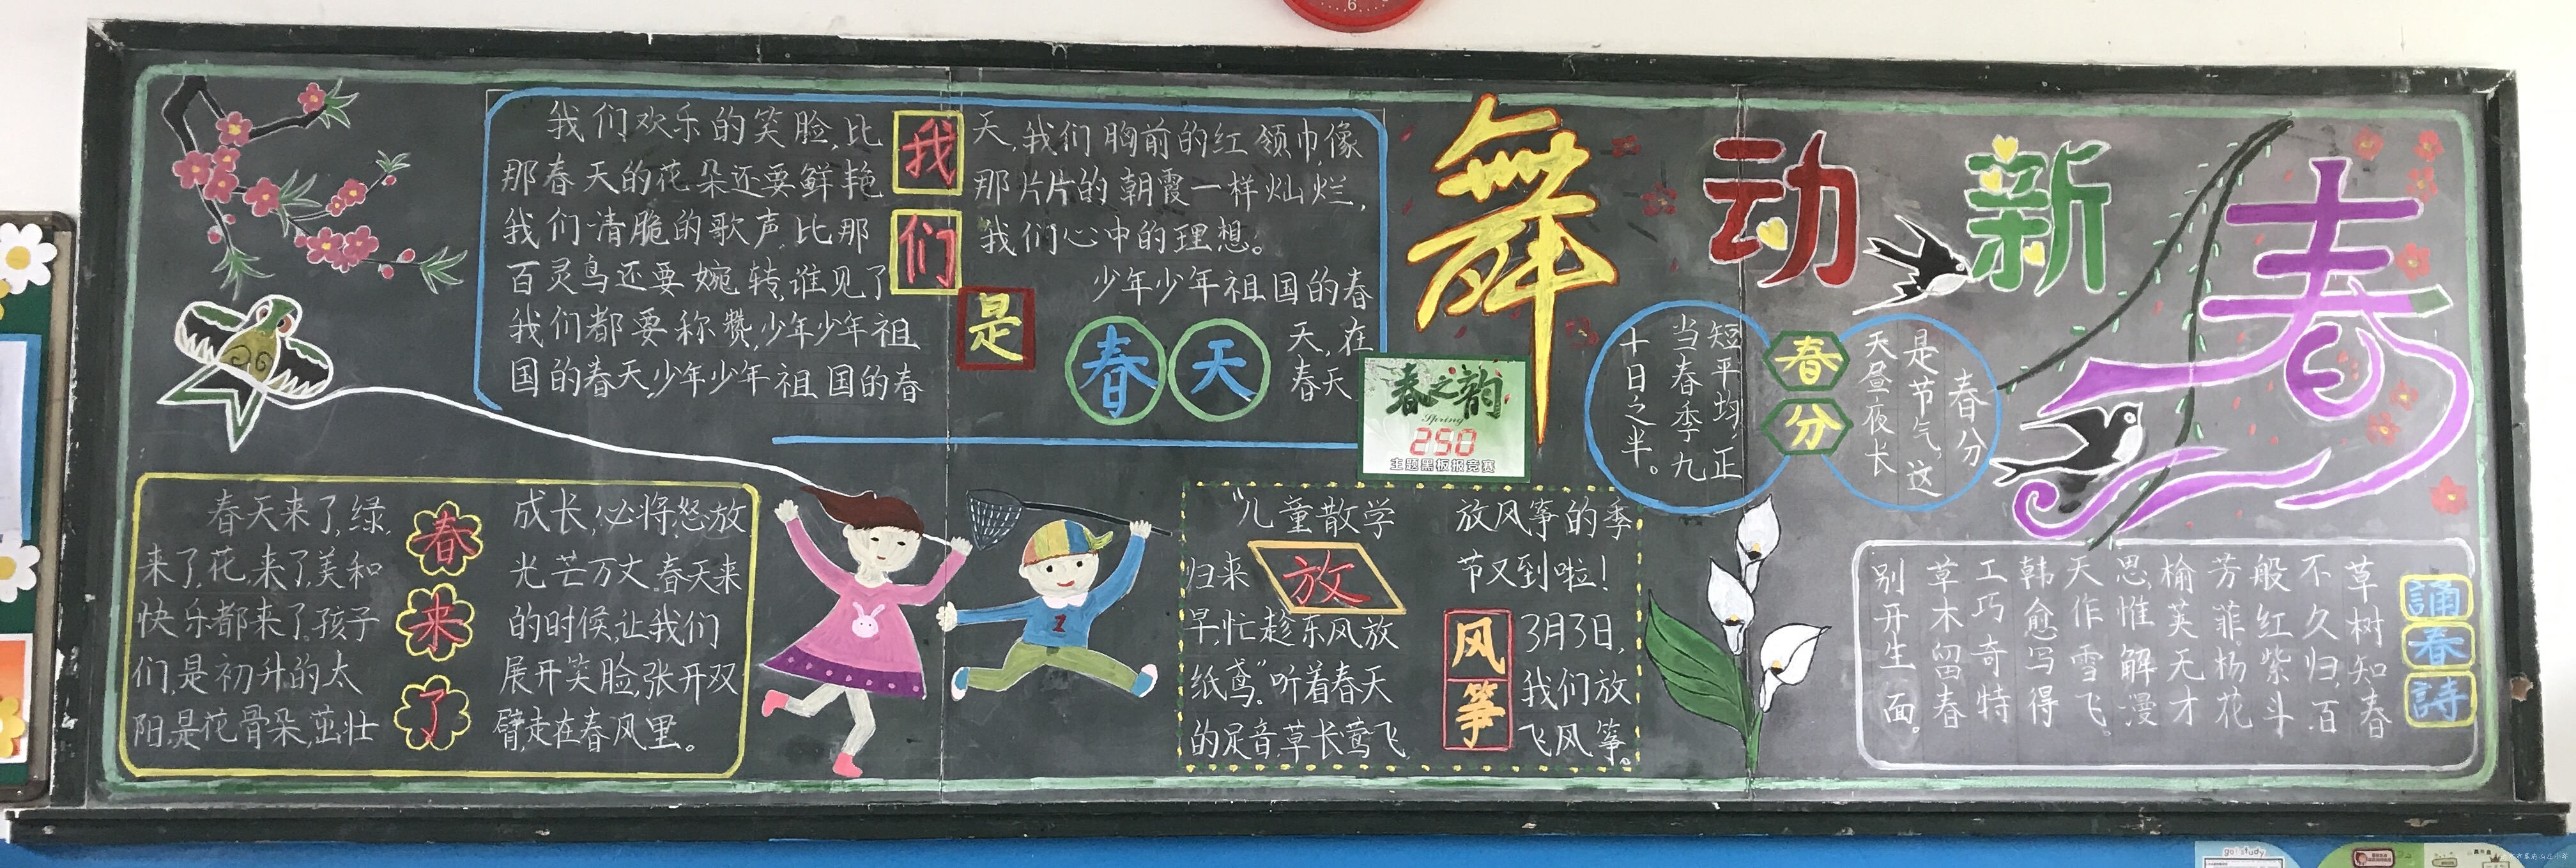 舞动新春
我们是
春天
我们欢乐的笑脸,比
那春天的花朵还要鲜艳
我们清脆的歌声,比那
百灵鸟还要婉转,谁见了
我们都要称赞,少年少年祖
国的春天,少年少年祖国的春
天,我们胸前的红领巾,像
那片片的朝霞一样灿烂,
我们心中的理想。
少年少年祖国的春
天,在
春天
春之韵
Spring
250
主题黑板报竞赛
春分
春分
是节气。这
天昼夜长
短平均,正
当春季九
十日之半。
春来了
春天来了,绿,
来了,花,来了,美和
快乐都来了。孩子
们,是初升的太
阳,是花骨朵,茁壮
成长,必将怒放
光芒万丈。春天来
的时候,让我们
展开笑脸,张开双
臂,走在春风里。
放
风筝
“儿童散学
归来
早,忙趁东风放
纸鸢。”听着春天
的足音,草长莺飞,
放风筝的季
节又到啦!
3月3日,
我们放
飞风筝。
誦春詩
草树知春
不久归,百
般红紫斗
芳菲。杨花
榆荚无才
思,惟解漫
天作雪飞。
韩愈写得
工巧奇特
草木留春
别开生面。
6
go! study